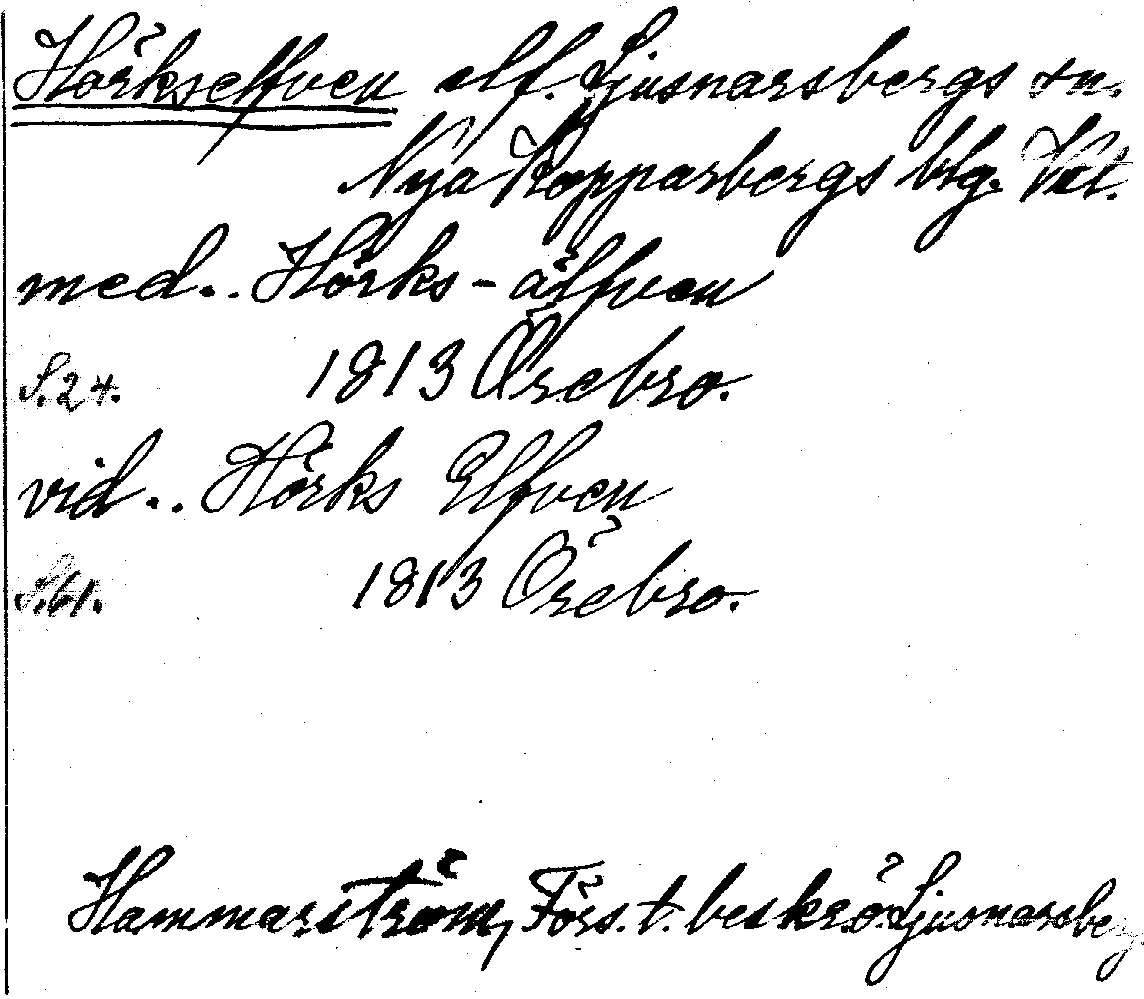 Hörkselfven elf. Ljusnarsbergs sn.
Nya Kopparbergs blg. Vstl.
med.. Hörks-älfven
S.24. 1813 Örebro.
vid.. Hörks Elfven
S.61. 1813 Örebro.
Hammarström, Förs. t. beskr. ö. Ljusnarsberg